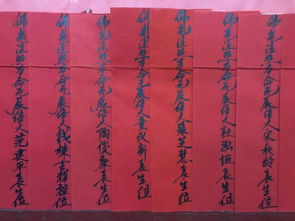 佛光注照本命元辰信人宋秋龄長生位
佛光注照本命元辰信人杜泓恒長生位
佛光注照本命元辰信人張慧長生位
佛光注照本命元辰信人長生位
佛光注照本命元辰信人陶俊長生位
佛光注照本命元辰信人長生位
佛光注照本命元辰信人范建平長生位